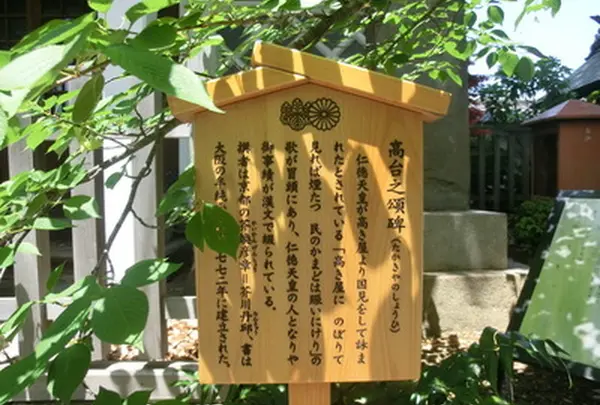 高台之頌碑(たかきやのしょうひ)
仁徳天皇が高き屋より国見をして詠ま
れたとされている「高き屋に のぼりて
見れば煙たつ 民のかまどは賑いにけり」の
歌が冒頭にあり、仁徳天皇の人となりや
御事績が漢文で綴られている。
撰者は京都の芥川丹邱、書は
大阪の
七七二年に建立された。